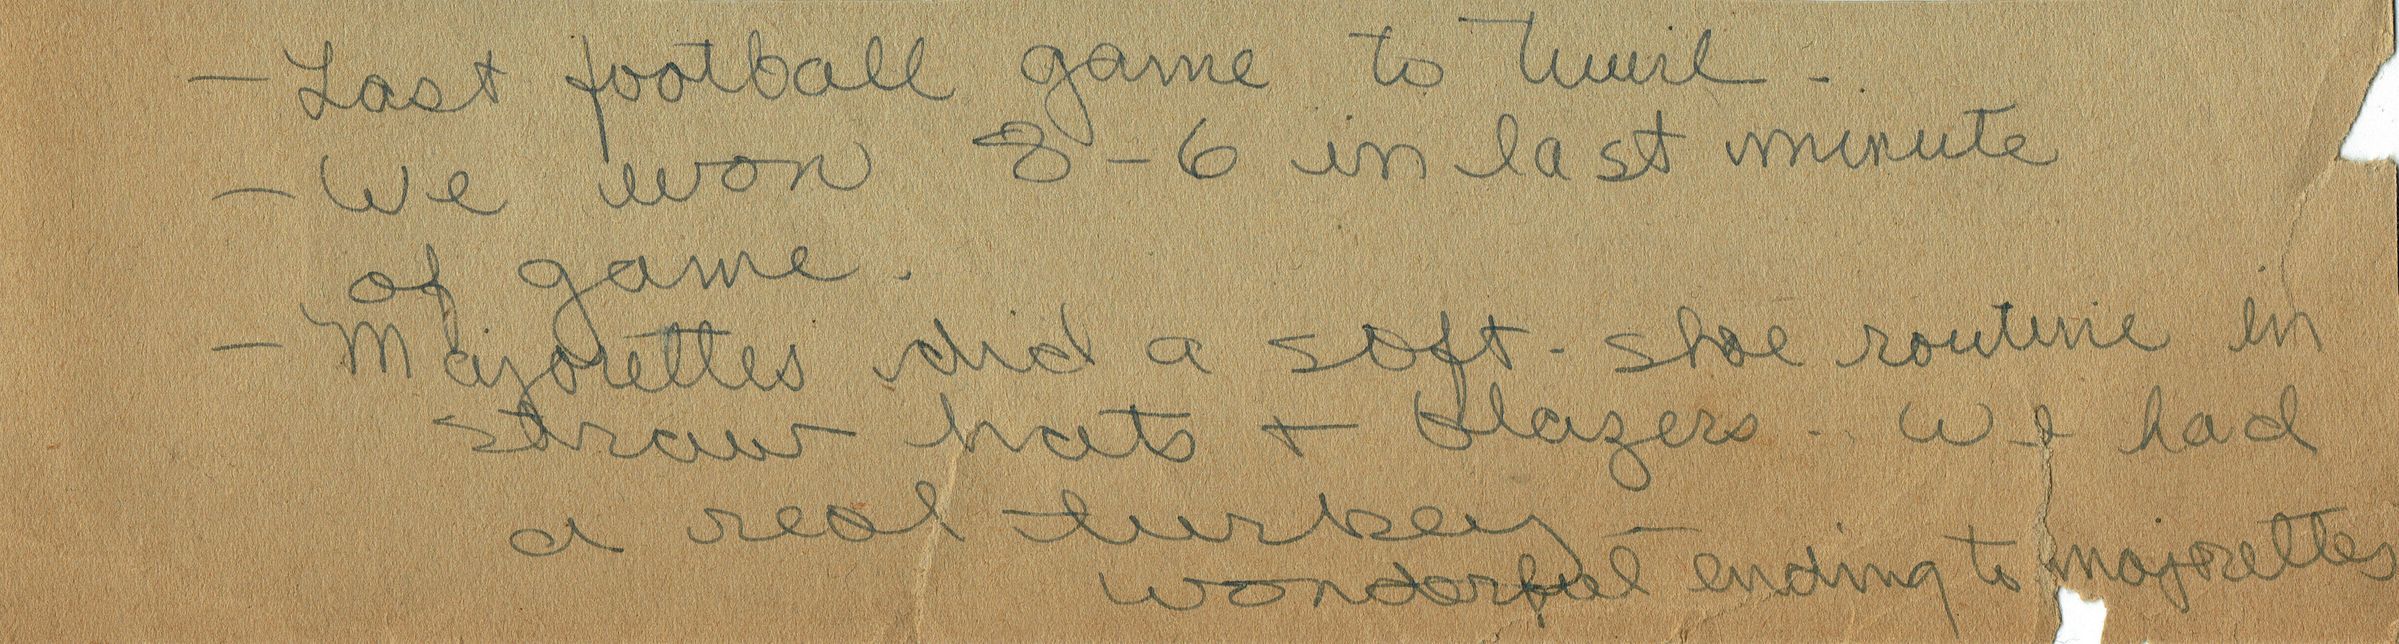 - Last football game to twirl -
- We won 8-6 in last minute
of game.
- Majorettes did a soft-shoe routine in
straw hats + blazers - We had
a real turkey -
wonderful ending to majorettes